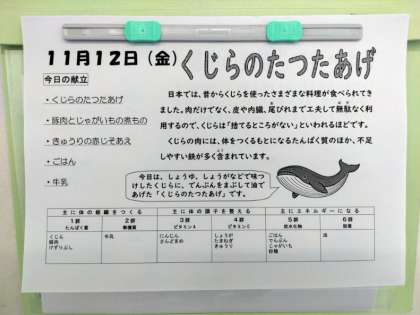 11月12日（金）くじらのたつたあげ
今日の献立
・くじらのたつたあげ
・豚肉とじゃがいもの煮もの
・きゅうりの赤じそあえ
・ごはん
・牛乳
日本では、昔からくじらを使ったさまざまな料理が食べられてき
ました。肉だけでなく、皮や内臓、尾びれまで工夫して無駄なく利
用するので、くじらは「捨てるところがない」といわれるほどです。
くじらの肉には、体をつくるもとになるたんぱく質のほか、不足
しやすい鉄が多く含まれています。
今日は、しょうゆ、しょうがなどで味つ
けしたくじらに、でんぷんをまぶして油で
あげた「くじらのたつたあげ」です。
主に体の組織をつくる 主に体の調子を整える 主にエネルギーになる
1群 2群 3群 4群 5群 6群
たんぱく質 無機質 ビタミンA ビタミンC 炭水化物 脂質
くじら 牛乳 にんじん しょうが ごはん 油
豚肉 さんどまめ たまねぎ でんぷん
けずりぶし きゅうり じゃがいも
砂糖